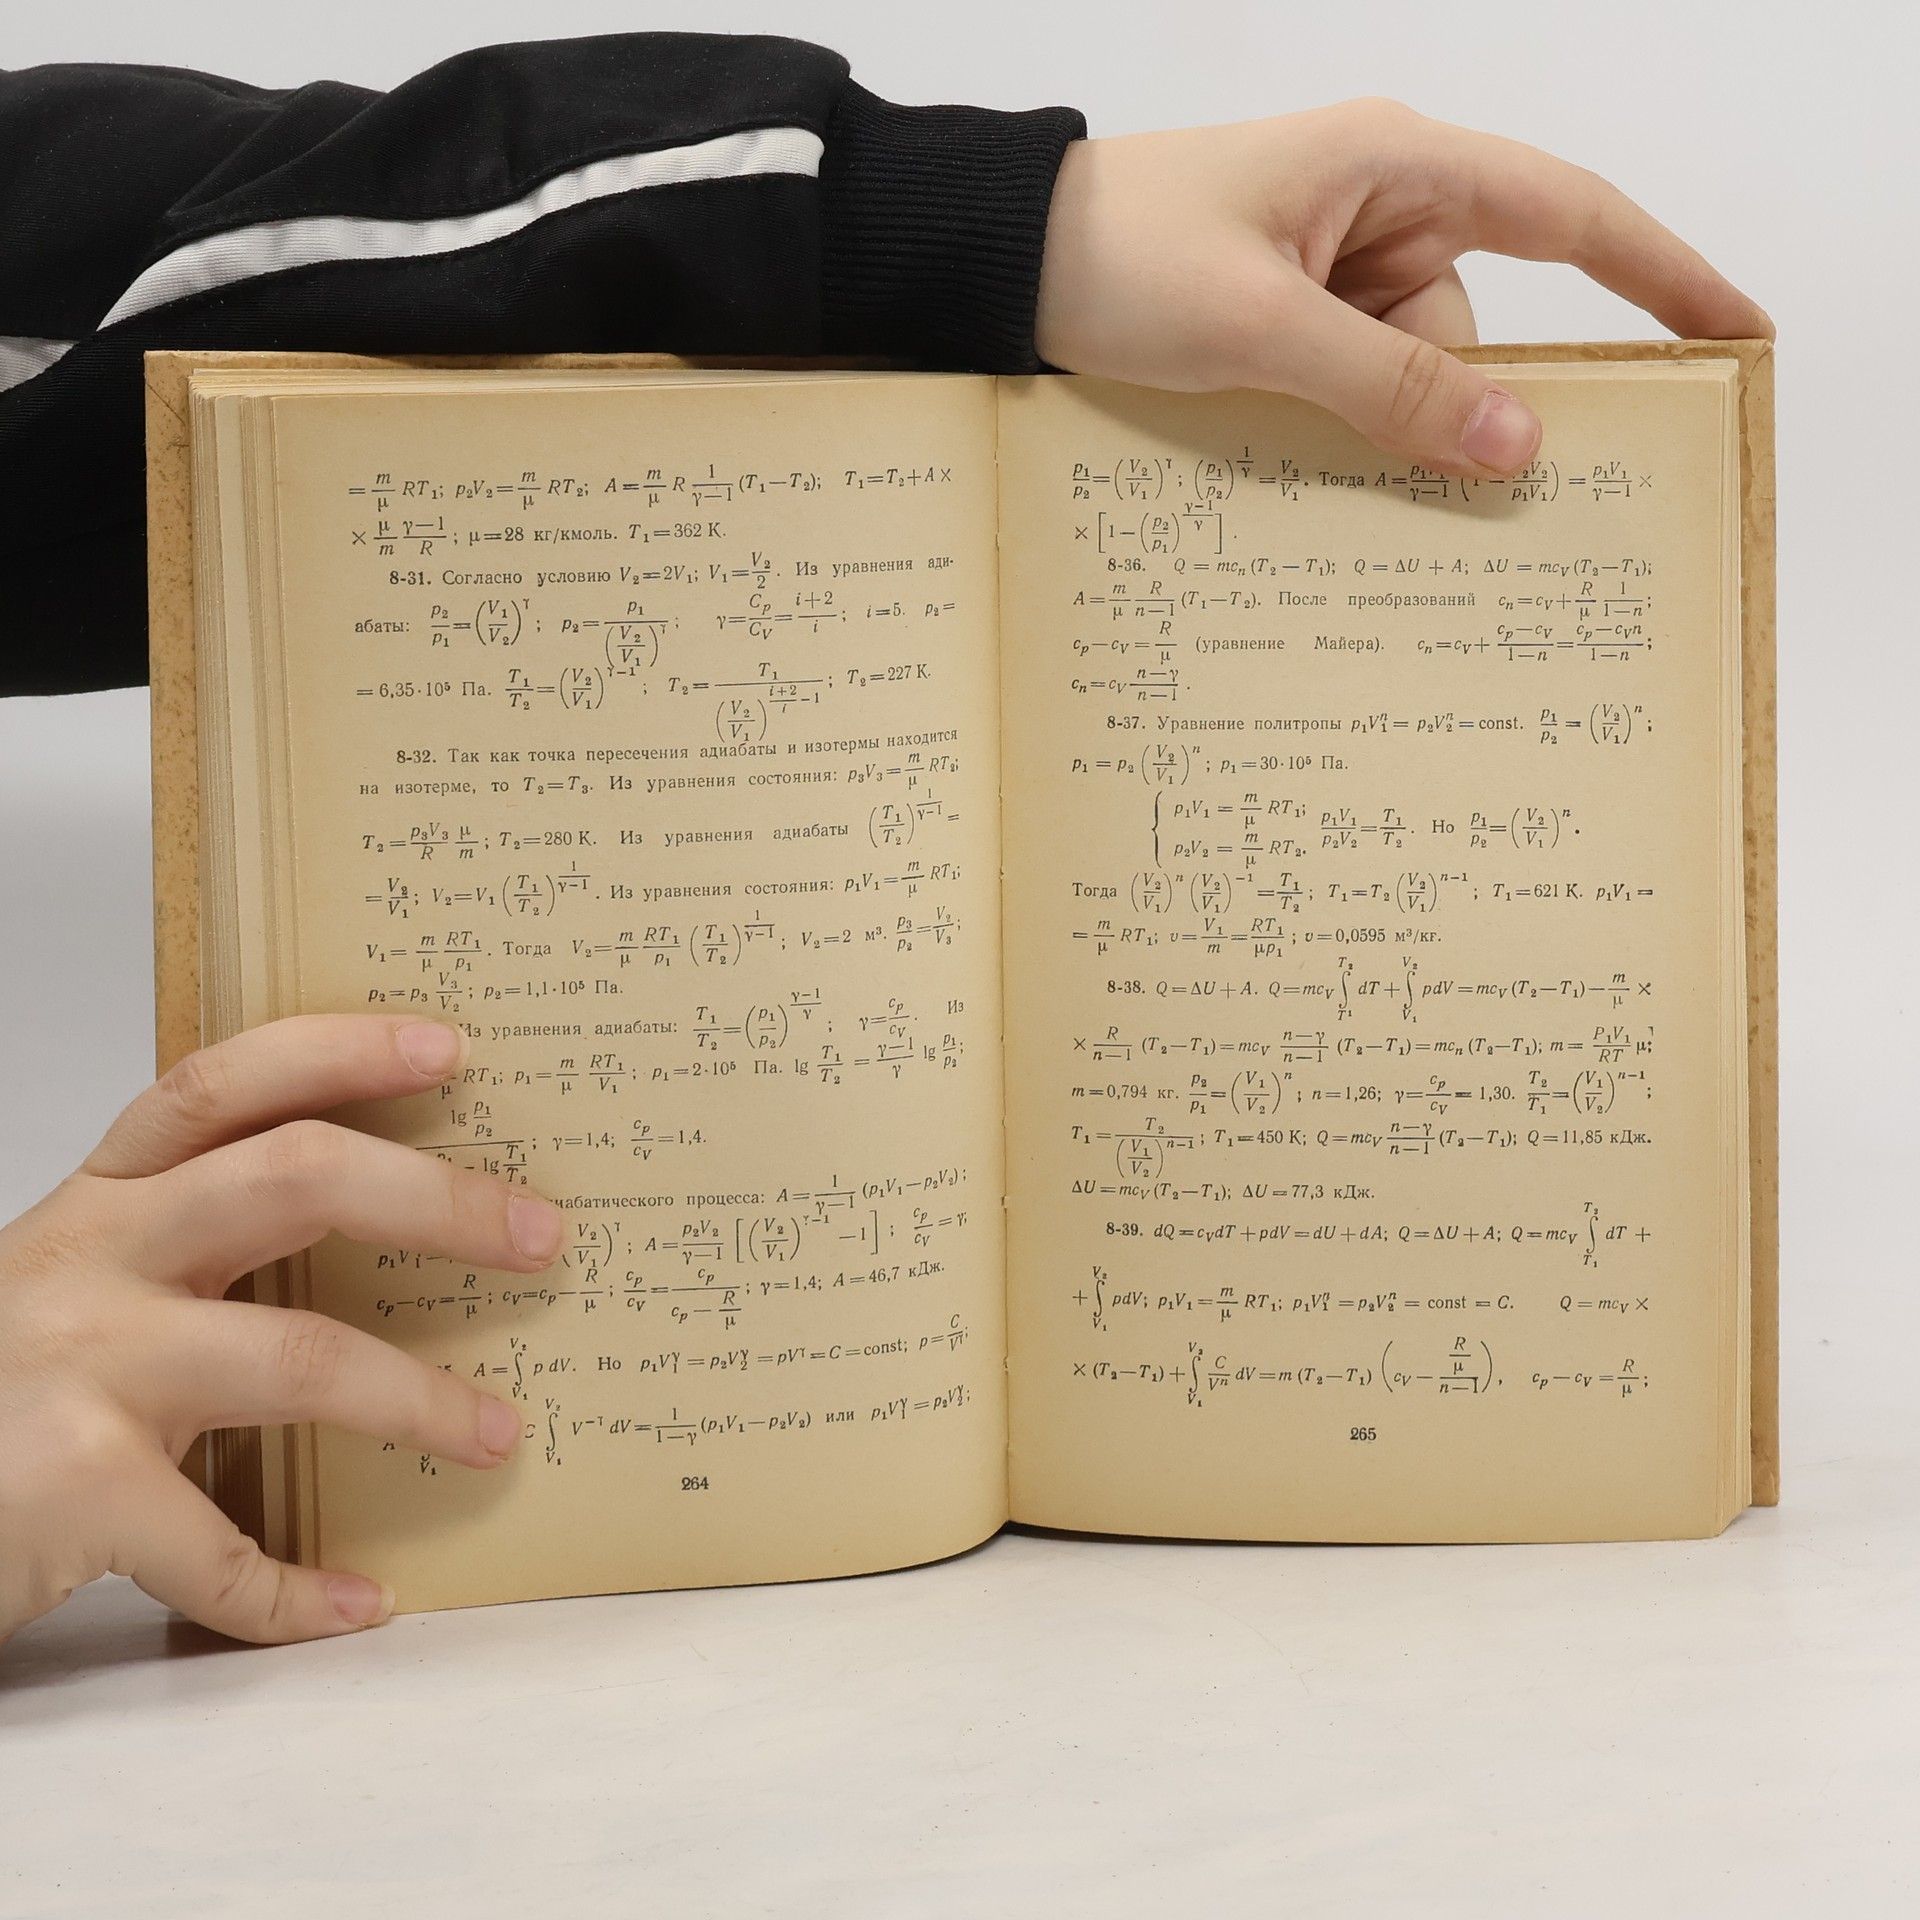 = m/μ RT₁; p₂V₂ = m/μ RT₂; A = m/μ R 1/(γ−1) (T₁−T₂); T₁ = T₂ + A ×
× μ/m (γ−1)/R; μ = 28 кг/кмоль. T₁ = 362 К.
8-31. Согласно условию V₂ = 2V₁; V₁ = V₂/2. Из уравнения ади-
абаты: p₂/p₁ = (V₁/V₂)^γ; p₂ = p₁/(V₂/V₁)^γ; γ = C_p/C_V = (i+2)/i; i = 5. p₂ =
= 6,35·10⁵ Па. T₁/T₂ = (V₂/V₁)^(γ−1); T₂ = T₁/(V₂/V₁)^((i+2)/i −1); T₂ = 227 К.
8-32. Так как точка пересечения адиабаты и изотермы находится
на изотерме, то T₂ = T₃. Из уравнения состояния: p₃V₃ = m/μ RT₂;
T₂ = p₃V₃/R μ/m; T₂ = 280 К. Из уравнения адиабаты (T₁/T₂)^(1/(γ−1)) =
= V₂/V₁; V₂ = V₁ (T₁/T₂)^(1/(γ−1)). Из уравнения состояния: p₁V₁ = m/μ RT₁;
V₁ = m/μ RT₁/p₁. Тогда V₂ = m/μ RT₁/p₁ (T₁/T₂)^(1/(γ−1)); V₂ = 2 м³. p₃/p₂ = V₂/V₃;
p₂ = p₃ V₃/V₂; p₂ = 1,1·10⁵ Па.
Из уравнения адиабаты: T₁/T₂ = (p₁/p₂)^((γ−1)/γ); γ = c_p/c_V. Из
μ RT₁; p₁ = m/μ RT₁/V₁; p₁ = 2·10⁵ Па. lg T₁/T₂ = (γ−1)/γ lg p₁/p₂;
lg p₁/p₂ / − lg T₁/T₂; γ = 1,4; c_p/c_V = 1,4.
процесса: A = 1/(γ−1) (p₁V₁ − p₂V₂);
p₁V₁ (V₂/V₁)^γ; A = p₂V₂/(γ−1) [(V₂/V₁)^(γ−1) − 1]; c_p/c_V = γ;
c_p − c_V = R/μ; c_V = c_p − R/μ; c_p/c_V = c_p/(c_p − R/μ); γ = 1,4; A = 46,7 кДж.
A = ∫_V₁^V₂ p dV. Но p₁V₁^γ = p₂V₂^γ = pV^γ = C = const; p = C/V^γ;
A V₁ C ∫_V₁^V₂ V^(−γ) dV = 1/(1−γ) (p₁V₁ − p₂V₂) или p₁V₁^γ = p₂V₂^γ;
264
p₁/p₂ = (V₂/V₁)^γ; (p₁/p₂)^(1/γ) = V₂/V₁. Тогда A = p₁V₁/(γ−1) (1 − p₂V₂/p₁V₁) = p₁V₁/(γ−1) ×
× [1 − (p₂/p₁)^((γ−1)/γ)].
8-36. Q = mcₙ (T₂ − T₁); Q = ΔU + A; ΔU = mc_V (T₂ − T₁);
A = m/μ R/(n−1) (T₁ − T₂). После преобразований cₙ = c_V + R/μ 1/(1−n);
c_p − c_V = R/μ (уравнение Майера). cₙ = c_V + (c_p − c_V)/(1−n) = (c_p − c_V n)/(1−n);
cₙ = c_V (n−γ)/(n−1).
8-37. Уравнение политропы p₁V₁ⁿ = p₂V₂ⁿ = const. p₁/p₂ = (V₂/V₁)ⁿ;
p₁ = p₂ (V₂/V₁)ⁿ; p₁ = 30·10⁵ Па.
{ p₁V₁ = m/μ RT₁;
p₂V₂ = m/μ RT₂. p₁V₁/p₂V₂ = T₁/T₂. Но p₁/p₂ = (V₂/V₁)ⁿ.
Тогда (V₂/V₁)ⁿ (V₂/V₁)⁻¹ = T₁/T₂; T₁ = T₂ (V₂/V₁)ⁿ⁻¹; T₁ = 621 К. p₁V₁ =
= m/μ RT₁; v = V₁/m = RT₁/μp₁; v = 0,0595 м³/кг.
8-38. Q = ΔU + A. Q = mc_V ∫_T₁^T₂ dT + ∫_V₁^V₂ pdV = mc_V (T₂ − T₁) − m/μ ×
× R/(n−1) (T₂ − T₁) = mc_V (n−γ)/(n−1) (T₂ − T₁) = mcₙ (T₂ − T₁); m = P₁V₁/RT μ;
m = 0,794 кг. p₂/p₁ = (V₁/V₂)ⁿ; n = 1,26; γ = c_p/c_V = 1,30. T₂/T₁ = (V₁/V₂)ⁿ⁻¹;
T₁ = T₂/(V₁/V₂)ⁿ⁻¹; T₁ = 450 К; Q = mc_V (n−γ)/(n−1) (T₂ − T₁); Q = 11,85 кДж.
ΔU = mc_V (T₂ − T₁); ΔU = 77,3 кДж.
8-39. dQ = c_V dT + pdV = dU + dA; Q = ΔU + A; Q = mc_V ∫_T₁^T₂ dT +
+ ∫_V₁^V₂ pdV; p₁V₁ = m/μ RT₁; p₁V₁ⁿ = p₂V₂ⁿ = const = C. Q = mc_V ×
× (T₂ − T₁) + ∫_V₁^V₂ C/Vⁿ dV = m (T₂ − T₁) (c_V − (R/μ)/(n−1)), c_p − c_V = R/μ;
265